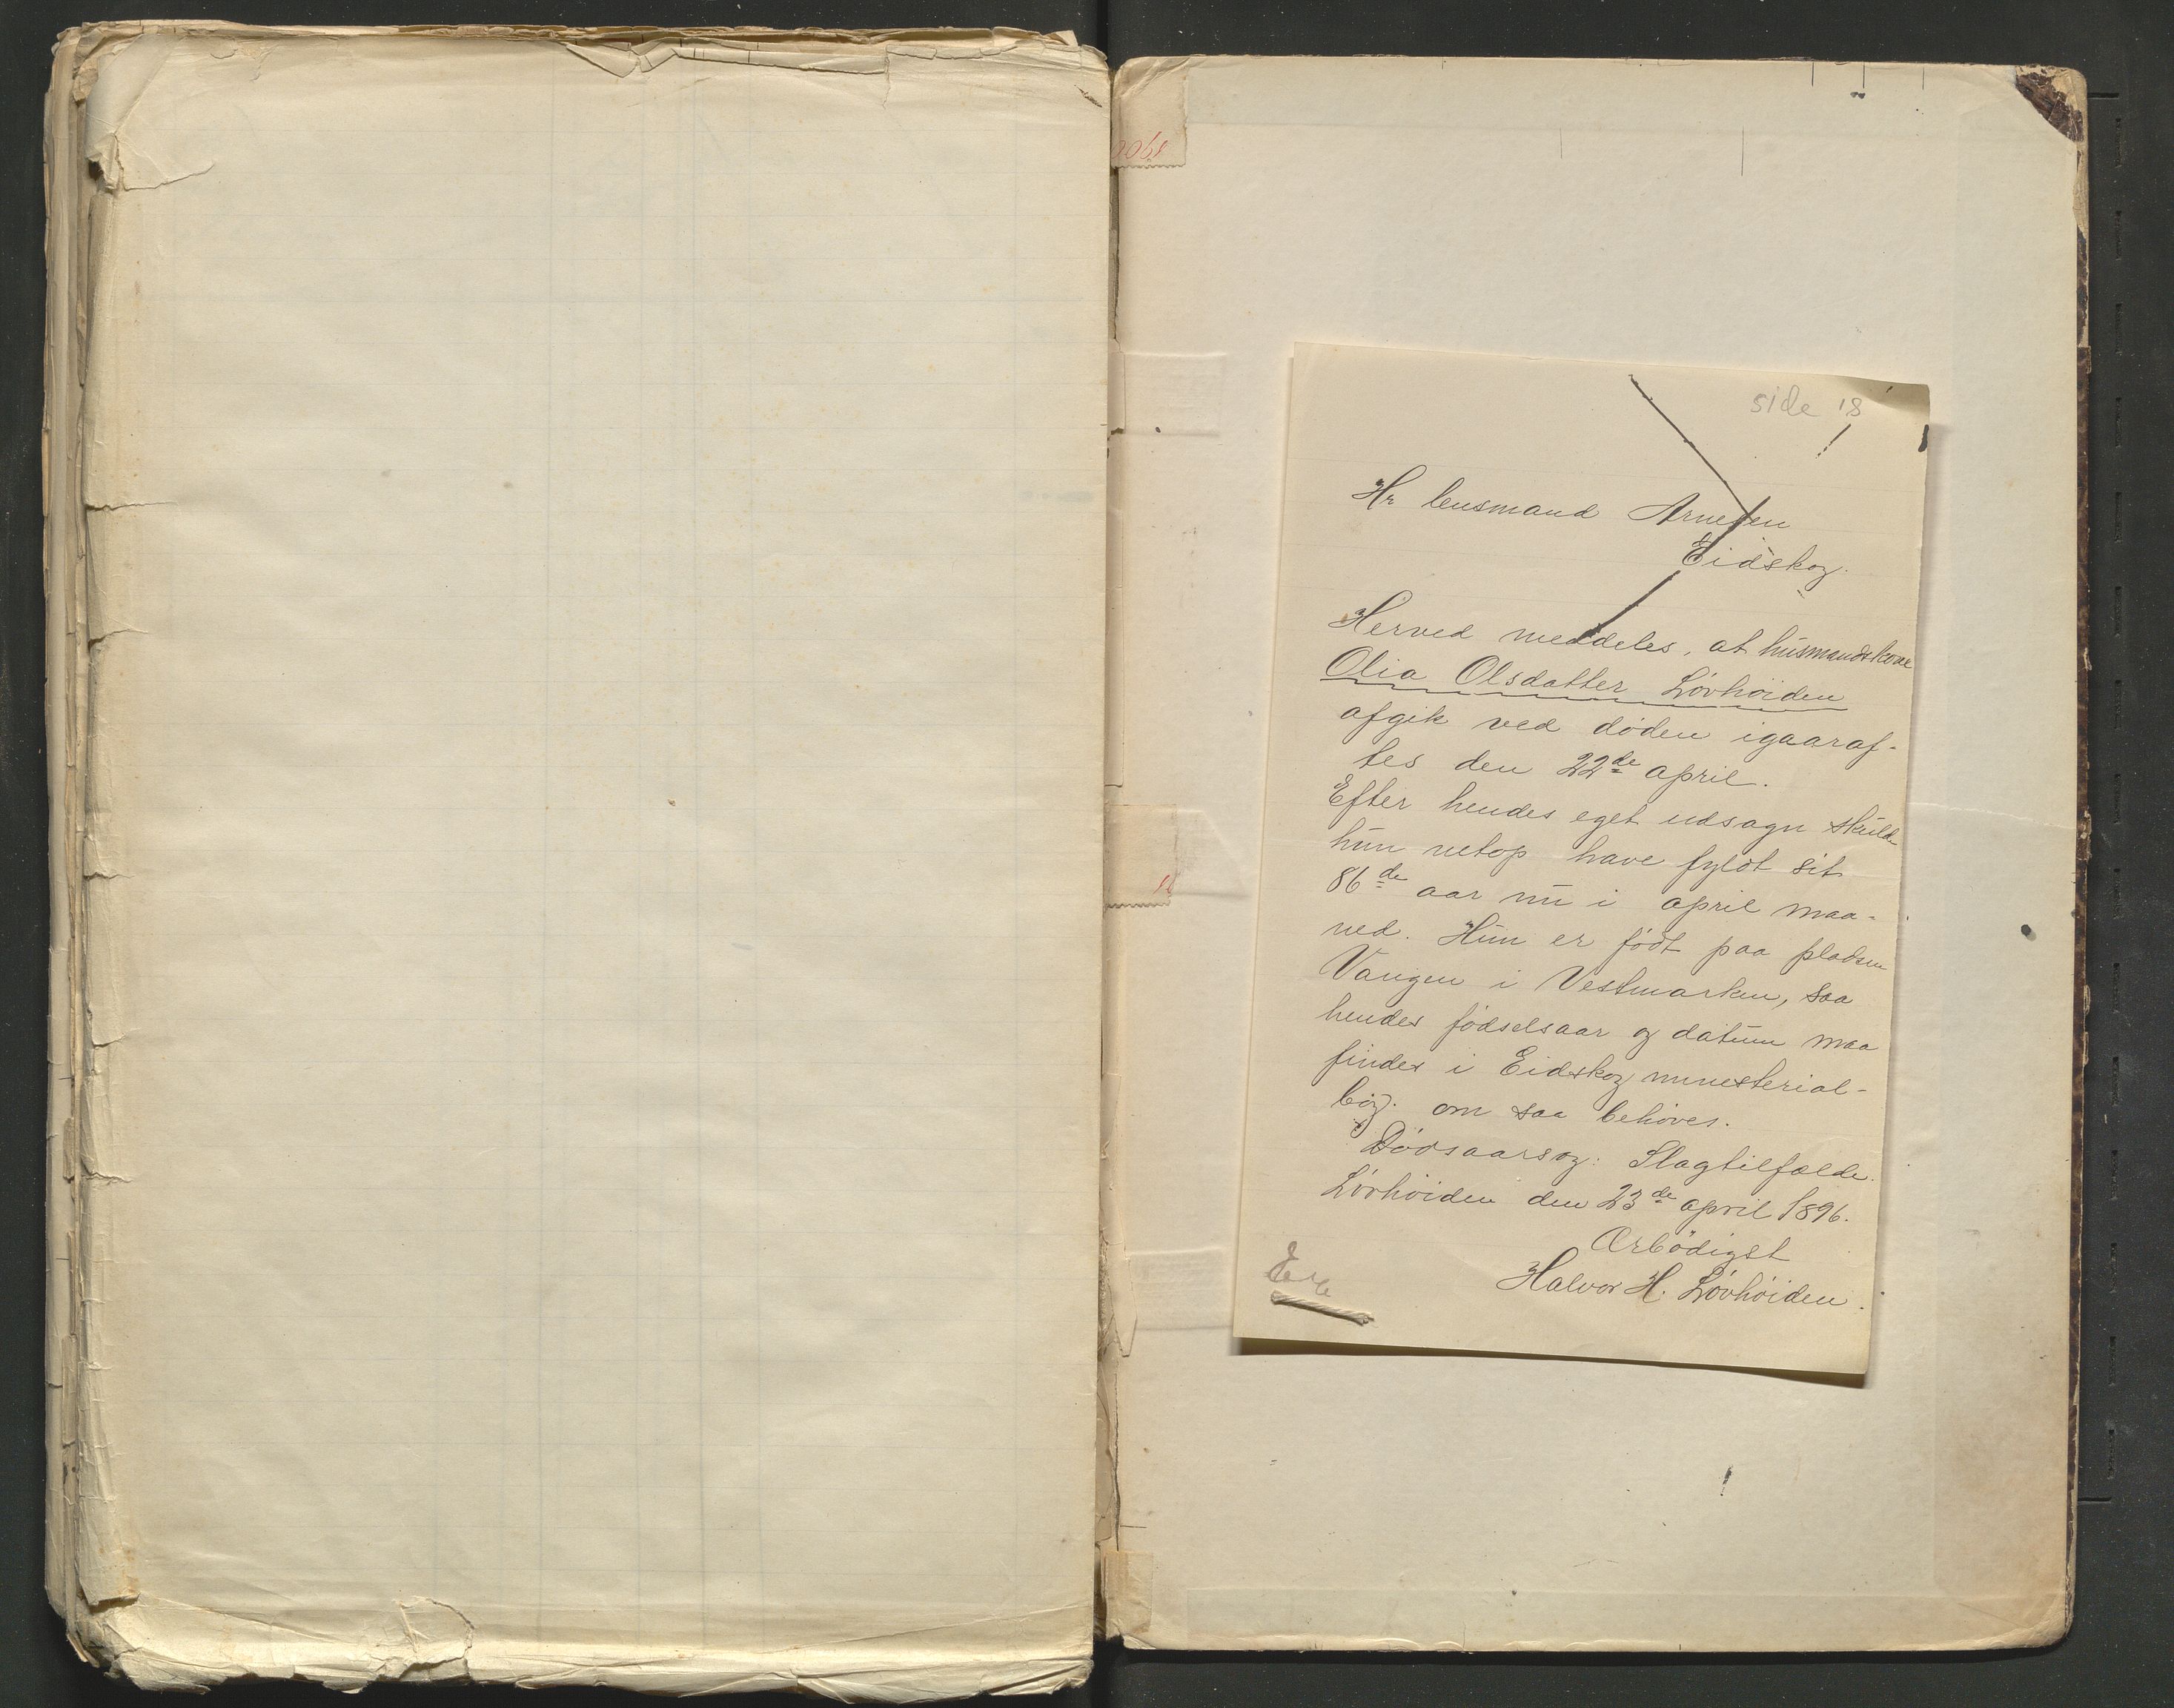 side 18
Hr lensmand Arnesen
Eidskog.
Herved meddeles, at husmandskone
Olia Olsdatter Lövhöiden
afgik ved döden igaaraf-
tes den 22de april.
Efter hendes eget udsagn skulde
hun netop have fyldt sit
86de aar nu i april maa-
ned. Hun er född paa pladsen
Vangen i Vestmarken, saa
hendes födselsaar og datum maa
findes i Eidskog ministerial-
bog. om saa behöves.
Dödsaarsag: Slagtilfælde.
Lövhöiden den 23de april 1896.
Ærbödigst
Halvor H. Lövhöiden.